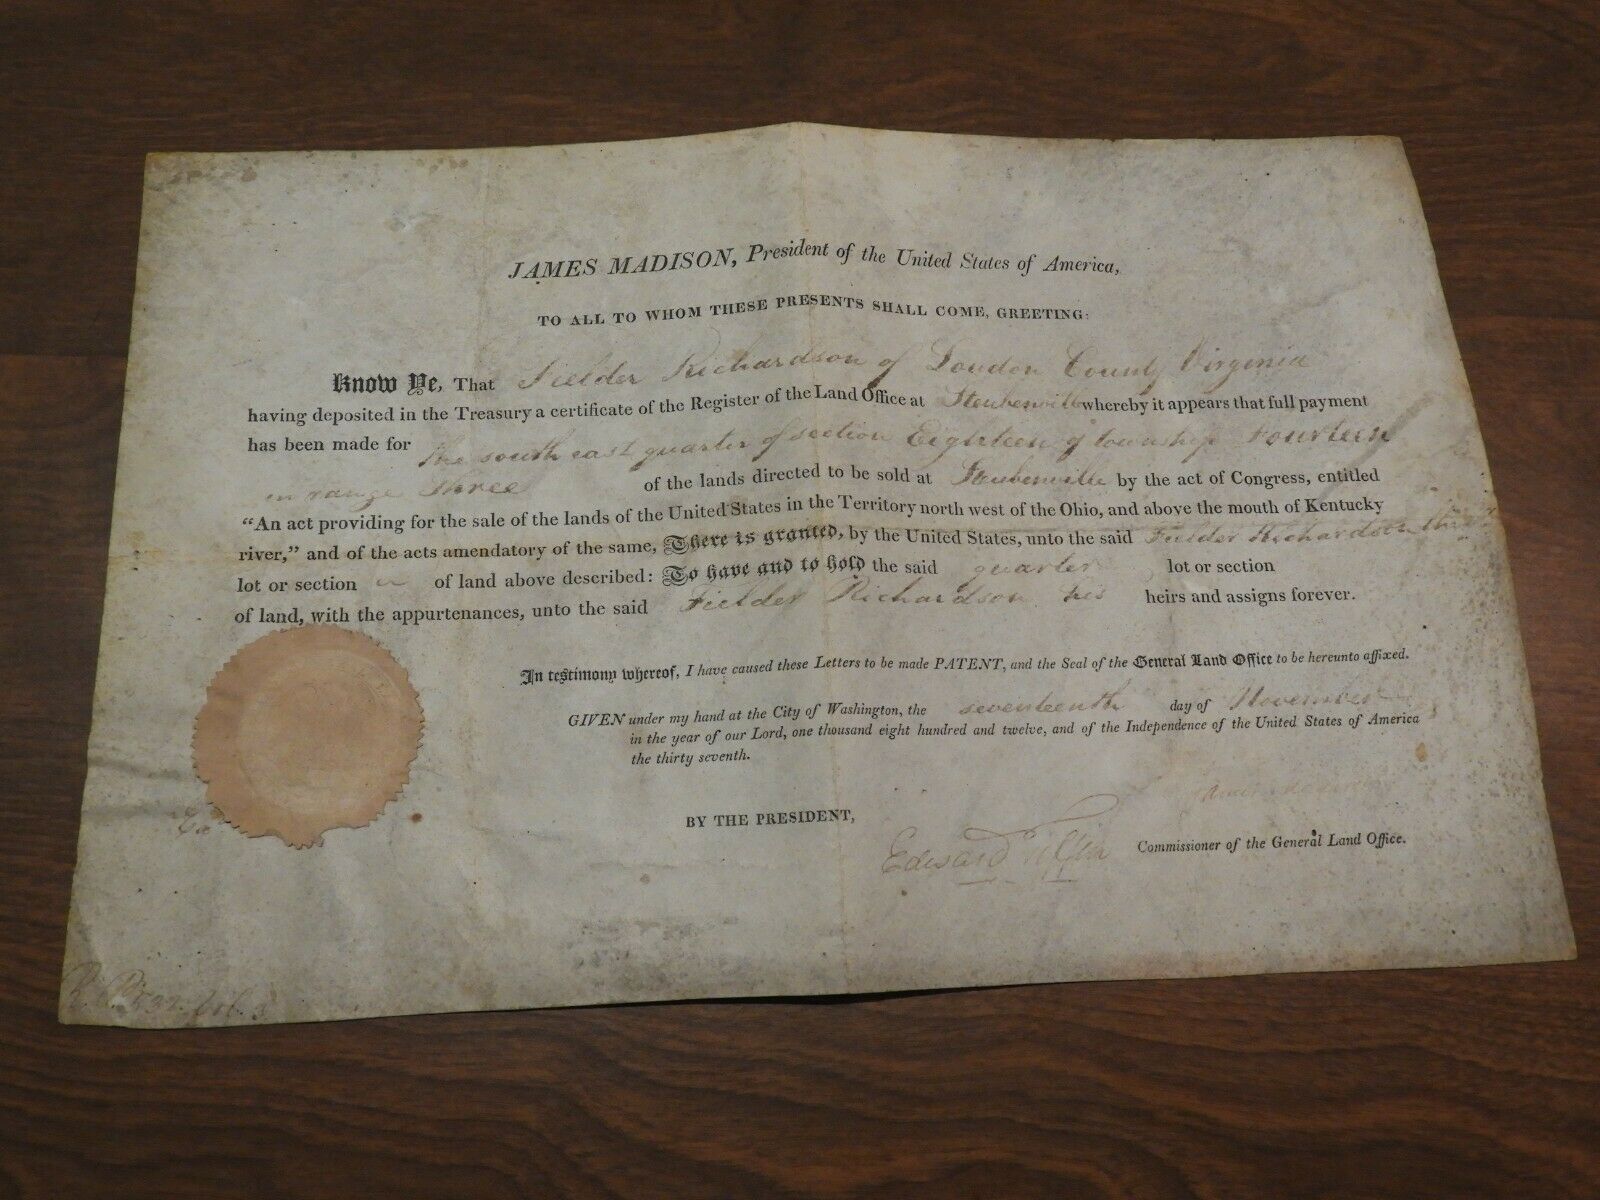 JAMES MADISON, President of the United States of America,
TO ALL TO WHOM THESE PRESENTS SHALL COME, GREETING:
Know Ye, That Fielder Richardson of Loudon County Virginia
having deposited in the Treasury a certificate of the Register of the Land Office at Steubenville whereby it appears that full payment
has been made for the south east quarter of section Eighteen of township Fourteen
in range Three of the lands directed to be sold at Steubenville by the act of Congress, entitled
“An act providing for the sale of the lands of the United States in the Territory north west of the Ohio, and above the mouth of Kentucky
river,” and of the acts amendatory of the same, There is granted, by the United States, unto the said Fielder Richardson the
lot or section of land above described: To have and to hold the said quarter lot or section
of land, with the appurtenances, unto the said Fielder Richardson his heirs and assigns forever.
In testimony whereof, I have caused these Letters to be made PATENT, and the Seal of the General Land Office to be hereunto affixed.
GIVEN under my hand at the City of Washington, the seventeenth day of November
in the year of our Lord, one thousand eight hundred and twelve, and of the Independence of the United States of America
the thirty seventh.
James Madison
BY THE PRESIDENT,
Edward Tiffin Commissioner of the General Land Office.